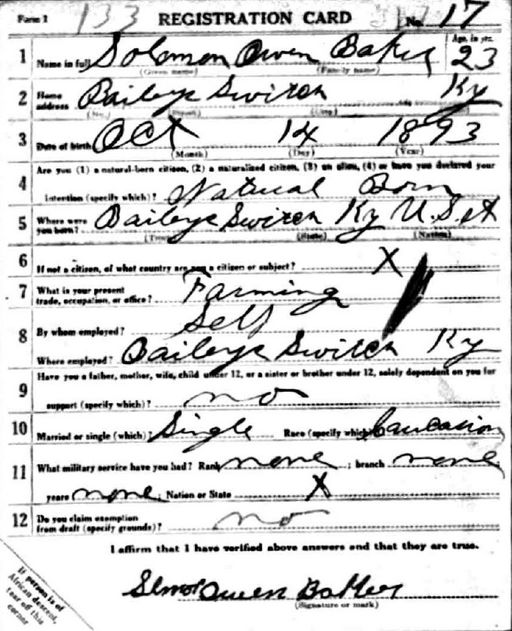 Form 1 133 REGISTRATION CARD No. 17
1 Name in full Solomon Owen Baker Age, in yrs. 23
(Given name) (Family name)
2 Home address Baileys Switch Ky
(No.) (Street) (City)
3 Date of birth Oct 14 1893
(Month) (Day) (Year)
4 Are you (1) a natural-born citizen, (2) a naturalized citizen, (3) an alien, (4) or have you declared your
intention (specify which)? Natural Born
5 Where were you born? Baileys Switch Ky U.S.A
(Town) (State) (Nation)
6 If not a citizen, of what country are you a citizen or subject? X
7 What is your present trade, occupation, or office? Farming
8 By whom employed? Self
Where employed? Baileys Switch Ky
9 Have you a father, mother, wife, child under 12, or a sister or brother under 12, solely dependent on you for
support (specify which)? no
10 Married or single (which)? Single Race (specify which)? Caucasion
11 What military service have you had? Rank none ; branch none
years none ; Nation or State X
12 Do you claim exemption from draft (specify grounds)? no
I affirm that I have verified above answers and that they are true.
Owen Baker
(Signature or mark)
If person is of
African descent,
tear off this
corner